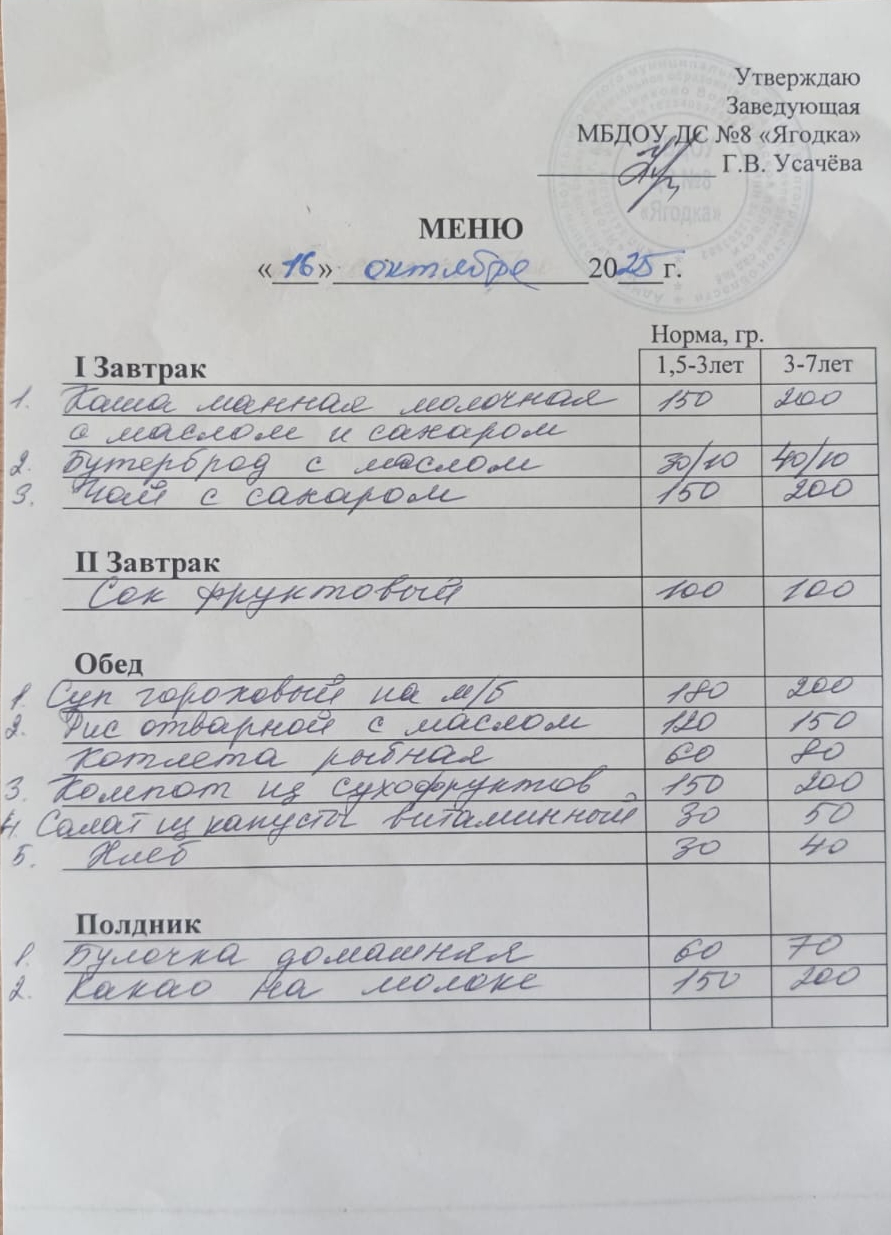 Утверждаю
Заведующая
МБДОУ ДС №8 «Ягодка»
Г.В. Усачёва
МЕНЮ
«16» октября 2025 г.
Норма, гр.
I Завтрак 1,5-3лет 3-7лет
1. Каша манная молочная 150 200
с маслом и сахаром
2. Бутерброд с маслом 30/10 40/10
3. Чай с сахаром 150 200
II Завтрак
Сок фруктовый 100 100
Обед
1. Суп гороховый на м/б 180 200
2. Рис отварной с маслом 120 150
Котлета рыбная 60 80
3. Компот из сухофруктов 150 200
4. Салат из капусты витаминный 30 50
5. Хлеб 30 40
Полдник
1. Булочка домашняя 60 70
2. Какао на молоке 150 200
№8
«Ягодка»